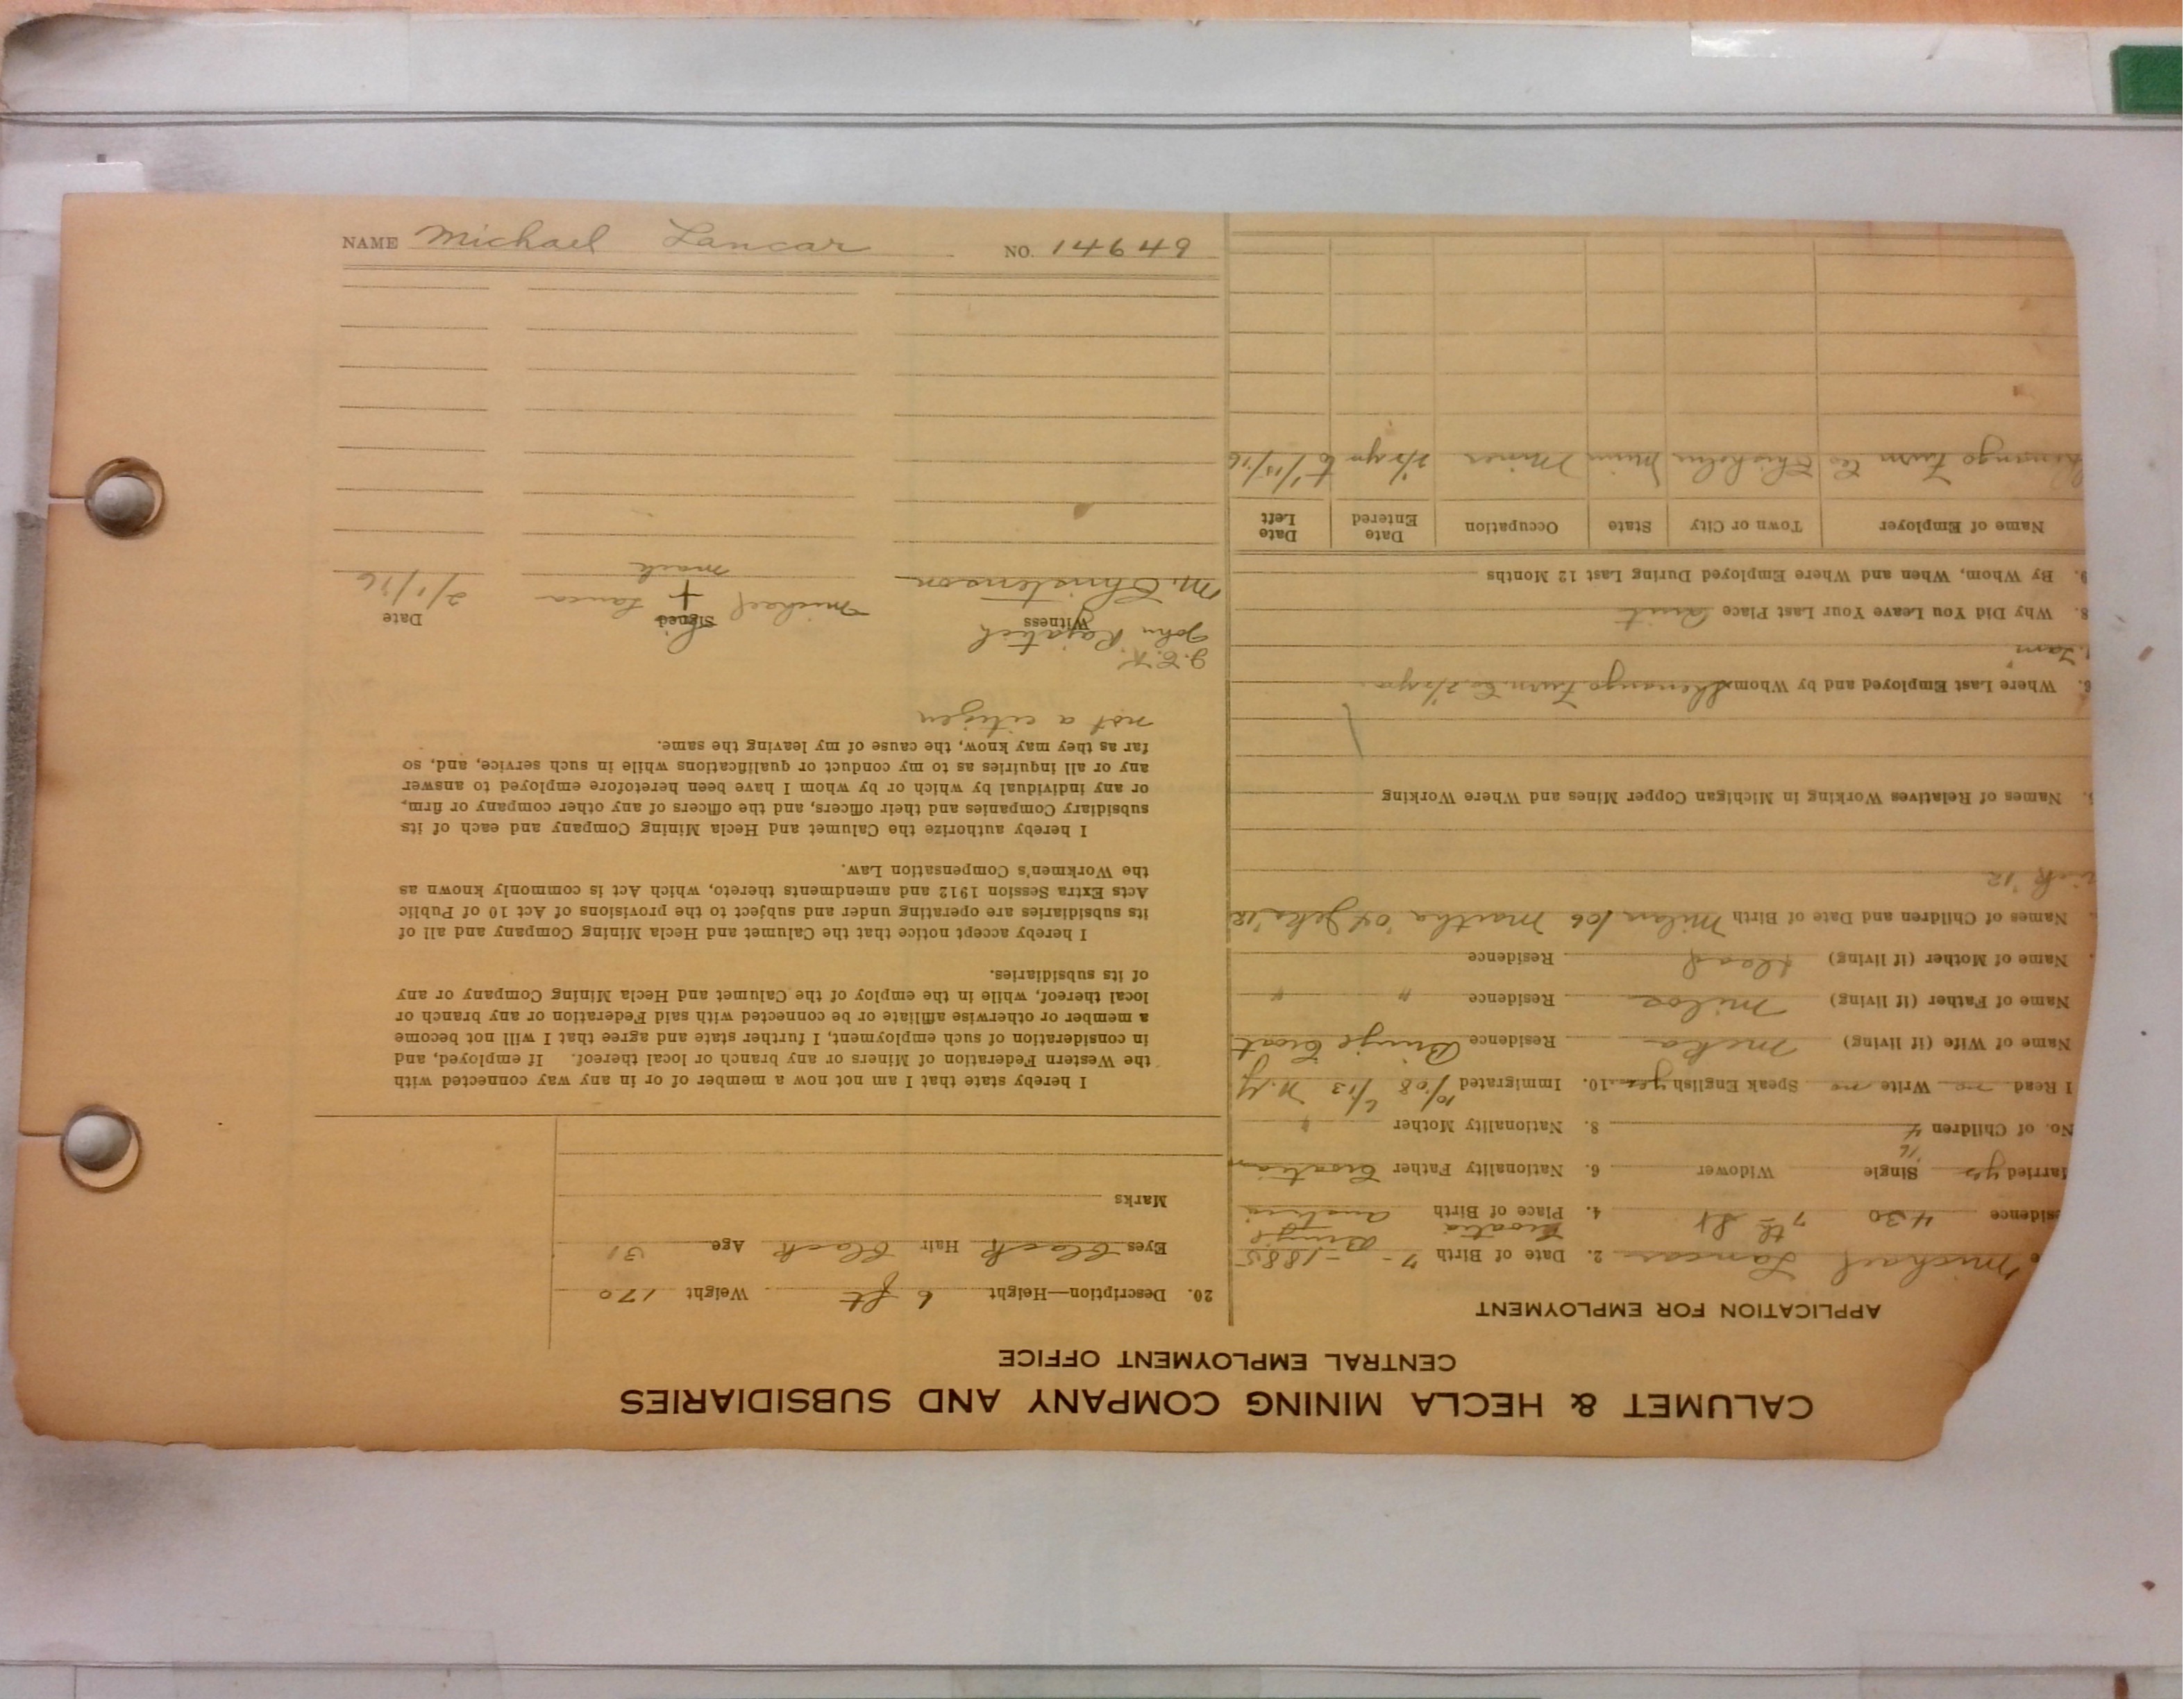 NAME Michael Lancar NO. 14649
CALUMET & HECLA MINING COMPANY AND SUBSIDIARIES
CENTRAL EMPLOYMENT OFFICE
APPLICATION FOR EMPLOYMENT
e Michael Lancar 2. Date of Birth 7 - - 1885
sidence 430 7th St 4. Place of Birth Croatia Austria
arried yes Single Widower 6. Nationality Father Croatian
'16
No. of Children 4 8. Nationality Mother "
I Read no Write no Speak English yes 10. Immigrated 10/08 6/13 N.Y
Name of Wife (if living) Meka Residence Croat
Name of Father (if living) Milos Residence " "
Name of Mother (if living) dead Residence
Names of Children and Date of Birth Milan '06 Martha '08 '12
'12
Names of Relatives Working in Michigan Copper Mines and Where Working
6. Where Last Employed and by Whom Shenango Furn Co 2/3 yrs
Tam
8. Why Did You Leave Your Last Place Quit
9. By Whom, When and Where Employed During Last 12 Months
Name of Employer Town or City State Occupation Date Entered Date Left
Shenango Furn Co Chisholm Minn Miner 2/3 yrs to 1/15/16
20. Description—Height 6 ft Weight 170
Eyes black Hair black Age 31
Marks
I hereby state that I am not now a member of or in any way connected with
the Western Federation of Miners or any branch or local thereof. If employed, and
in consideration of such employment, I further state and agree that I will not become
a member or otherwise affiliate or be connected with said Federation or any branch or
local thereof, while in the employ of the Calumet and Hecla Mining Company or any
of its subsidiaries.
I hereby accept notice that the Calumet and Hecla Mining Company and all of
its subsidiaries are operating under and subject to the provisions of Act 10 of Public
Acts Extra Session 1912 and amendments thereto, which Act is commonly known as
the Workmen's Compensation Law.
I hereby authorize the Calumet and Hecla Mining Company and each of its
subsidiary Companies and their officers, and the officers of any other company or firm,
or any individual by which or by whom I have been heretofore employed to answer
any or all inquiries as to my conduct or qualifications while in such service, and, so
far as they may know, the cause of my leaving the same.
not a citizen
J.E.K.
John
Witness Signed Date
M. Christenson Michael + Lancar 2/1/16
mark